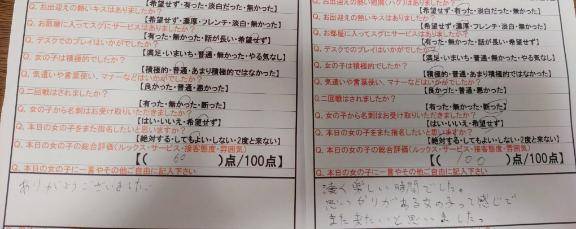 Q. お出迎えの熱いキスはありましたか？
【希望せず・有った・淡白・無かった】
Q. お部屋に入ってスグにサービスはありましたか？
【希望せず・濃厚・フレンチ・淡白・無かった】
【有った・無かった・話が長い・希望せず】
Q. デスクでのプレイはいかがでしたか？
【満足・いまいち・普通・無かった・やる気なし】
Q. 女の子は積極的でしたか？
【積極的・普通・あまり積極的ではなかった】
Q. 気遣いや言葉使い、マナーなどはいかがでしたか？
【良かった・普通・悪かった】
Q. 二回戦はされましたか？
【有った・無かった・断った】
Q. 女の子から名刺はお受け取りいただきましたか？
【はい・いいえ・希望せず】
Q. 本日の女の子をまた指名したいと思いますか？
【絶対する・してもよい・しない・2度と来ない】
Q. 本日の女の子の総合評価(ルックス・サービス・接客態度・雰囲気)
【( 60 )点/100点】
Q. 本日の女の子に一言やその他ご自由に記入下さい
ありがとうございました
【希望せず・有った・淡白・無かった】
【希望せず・濃厚・フレンチ・淡白・無かった】
Q. お部屋に入ってスグにサービスはありましたか？
【有った・無かった・話が長い・希望せず】
Q. デスクでのプレイはいかがでしたか？
【満足・いまいち・普通・無かった・やる気なし】
Q. 女の子は積極的でしたか？
【積極的・普通・あまり積極的ではなかった】
Q. 気遣いや言葉使い、マナーなどはいかがでしたか？
【良かった・普通・悪かった】
Q. 二回戦はされましたか？
【有った・無かった・断った】
Q. 女の子から名刺はお受け取りいただきましたか？
【はい・いいえ・希望せず】
Q. 本日の女の子をまた指名したいと思いますか？
【絶対する・してもよい・しない・2度と来ない】
Q. 本日の女の子の総合評価(ルックス・サービス・接客態度・雰囲気)
【( 100 )点/100点】
Q. 本日の女の子に一言やその他ご自由に記入下さい
凄く楽しい時間でした。
思いやりがある女の子って感じで
また来たいと思いました